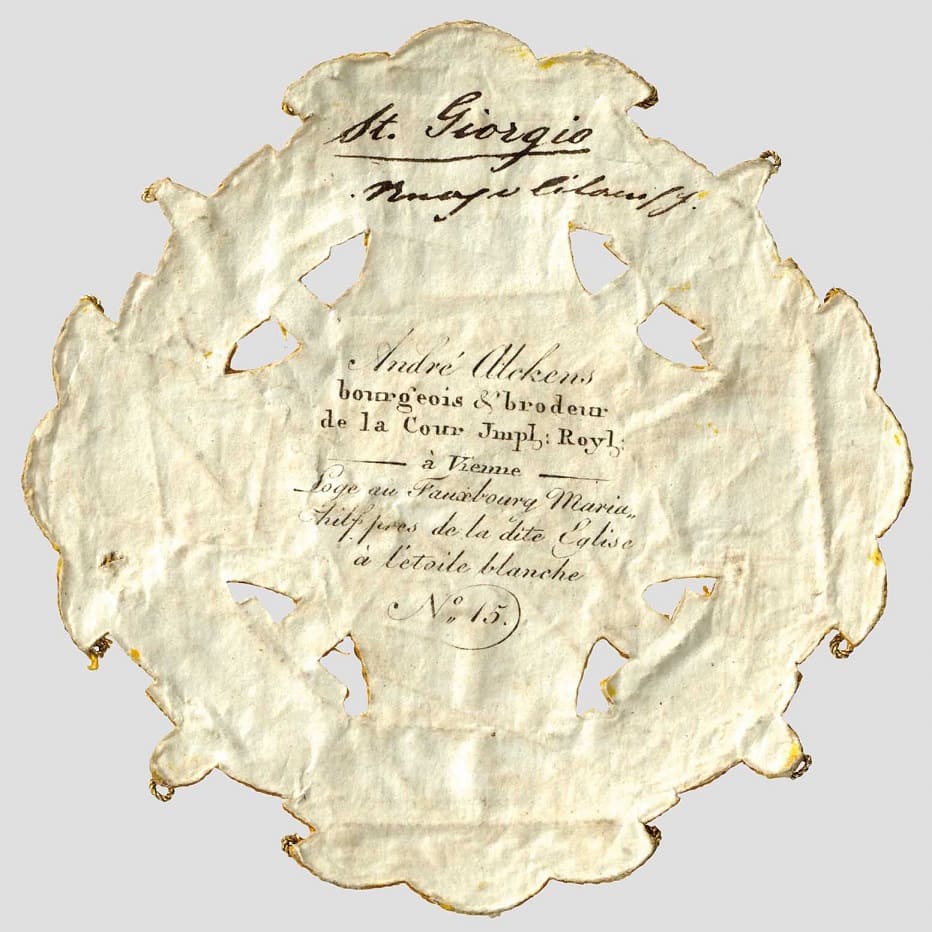 St. Giorgio
André Alckens
bourgeois & brodeur
de la Cour Jmpl: Royl:
à Vienne
Loge au Fauxbourg Maria„
hilf pres de la dite Eglise
à l'étoile blanche
N° 15.